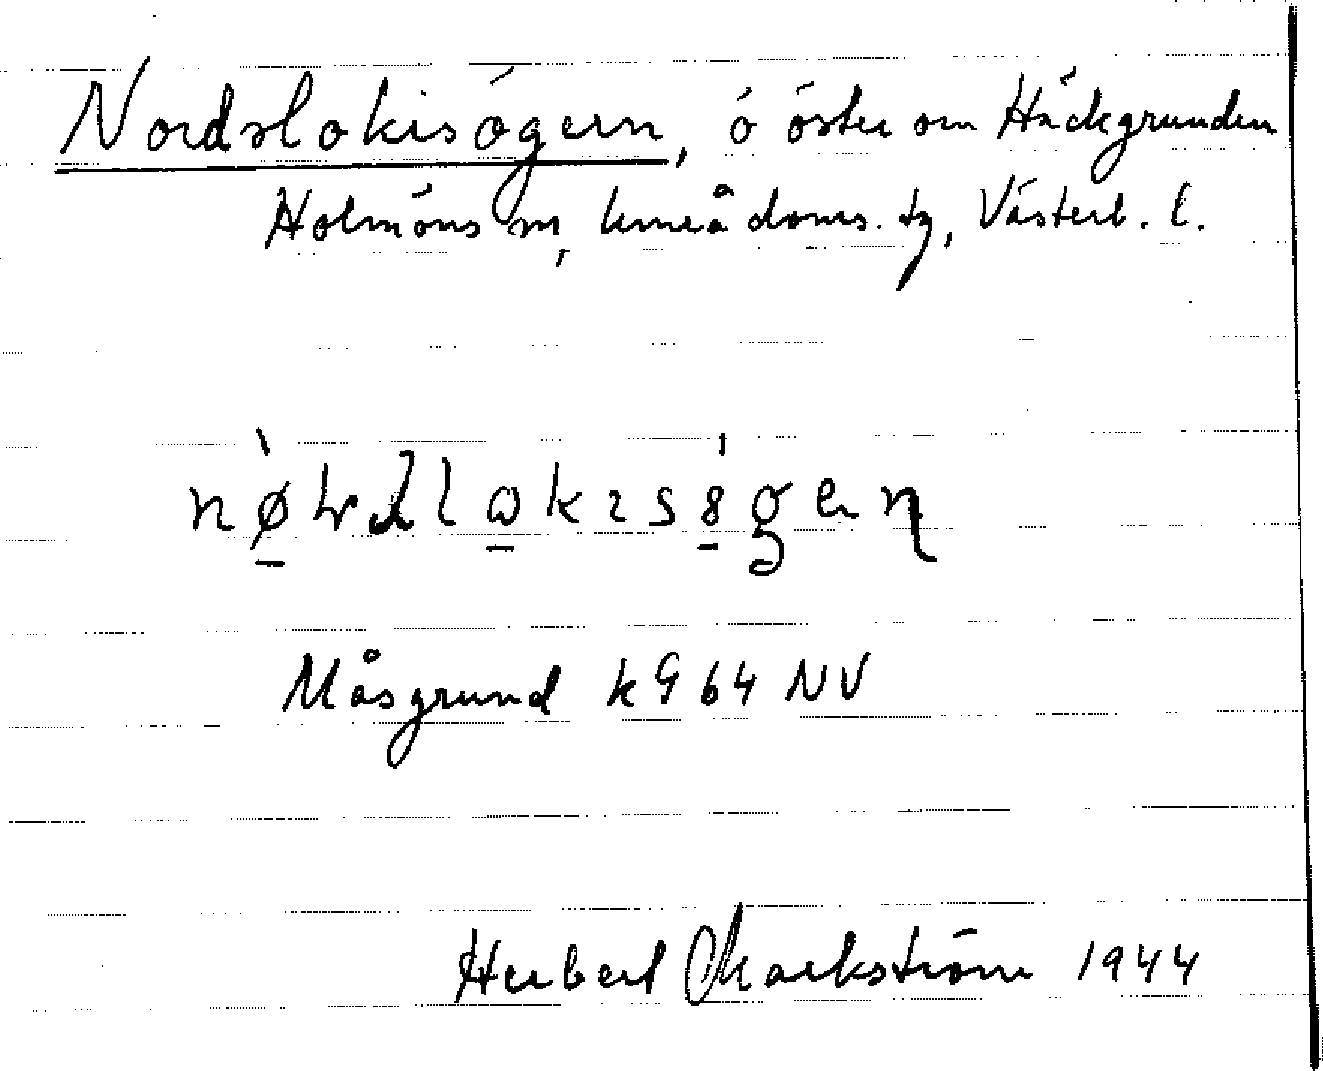 Nordslokisögern, ö öster om Häckgrunden
Holmöns sn, Umeå doms. tg, Västerb. l.
Måsgrund k 964 NV
Herbert Markström 1944